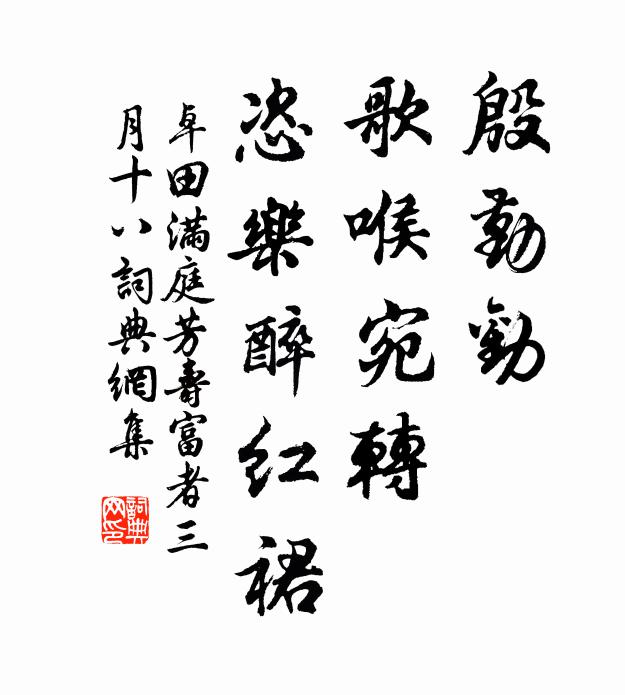 殷勤勸
歌喉宛轉
恣樂醉紅裙
卓田滿庭芳壽富者三
月十八詞典網集
詞典
网印